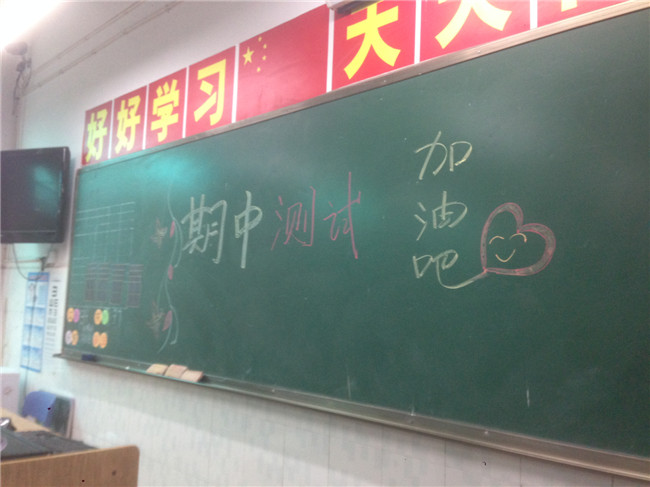 好好学习 天天
期中测试
加油吧